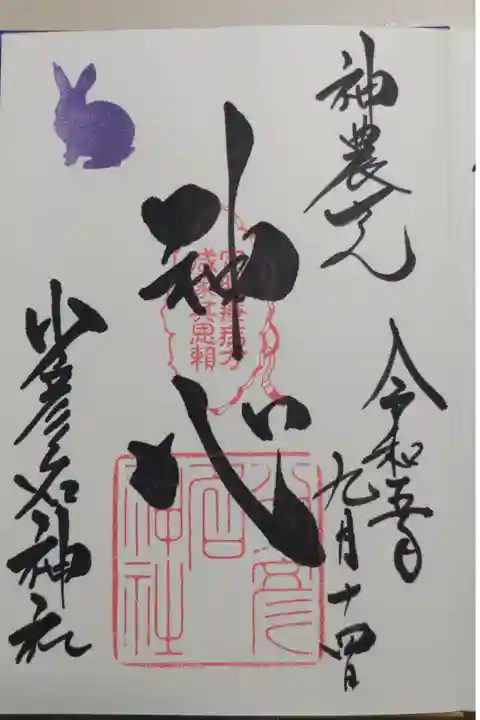 神農さん
令和五年
九月十四日
神心
少彦名神社
少彦名神社